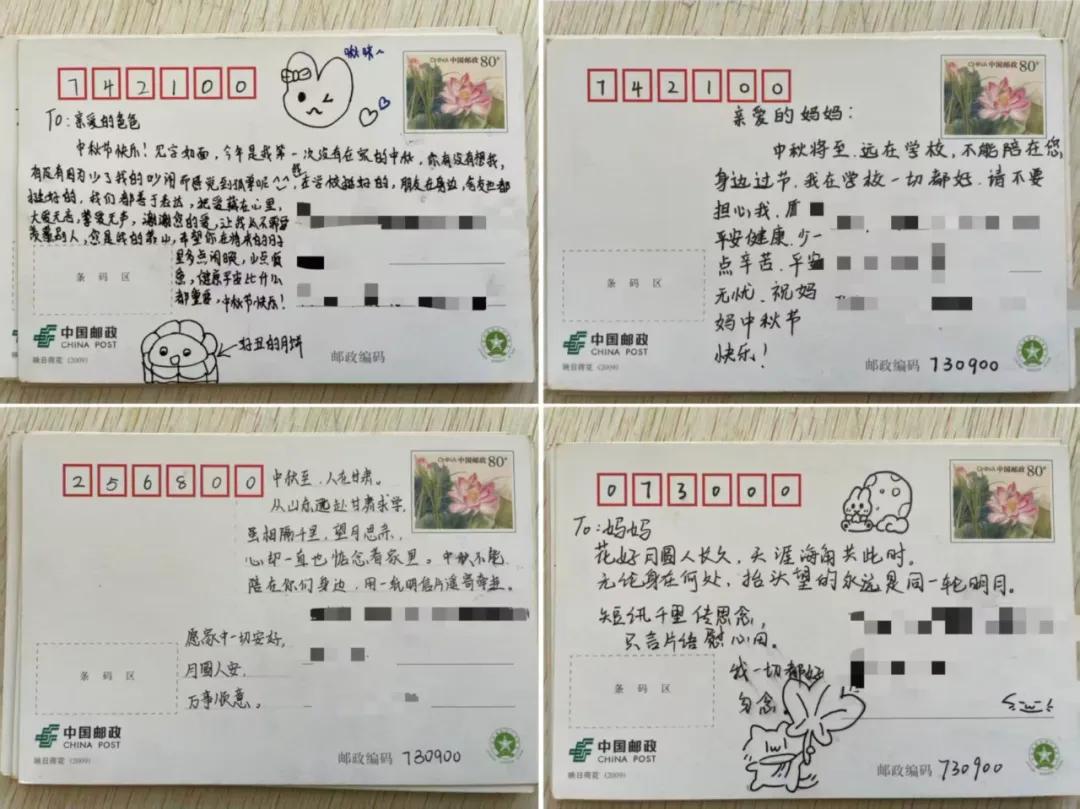 742100
啾咪~
CHINA 中国邮政 80分
To:亲爱的爸爸
中秋节快乐!见字如面,今年是我第一次没有在家的中秋,你有没有想我,
有没有因为少了我的吵闹而感觉到孤单呢^^我在学校挺好的,朋友在身边,舍友也都
挺好的,我们都善于表达,把爱藏在心里,
大爱无言,挚爱无声,谢谢您的爱,让我从不需要
羡慕别人,您是我的靠山,希望你在将来的日子
里多点闲暇,少点疲
惫,健康平安比什么
都重要,中秋节快乐!
条码区
中国邮政
CHINA POST
映日荷花 (2009)
好丑的月饼
邮政编码
742100
CHINA 中国邮政 80分
亲爱的妈妈:
中秋将至,远在学校,不能陪在您
身边过节,我在学校一切都好,请不要
担心我,愿
平安健康,少一
点辛苦,平安
无忧,祝妈
妈中秋节
快乐!
条码区
中国邮政
CHINA POST
映日荷花 (2009)
邮政编码 730900
256800
CHINA 中国邮政 80分
中秋至,人在甘肃。
从山东远赴甘肃求学,
虽相隔千里,望月思亲,
心却一直也惦念着家里。中秋不能
陪在你们身边,用一轧明信片遥寄牵挂。
愿家中一切安好,
月圆人安,
万事顺意。
条码区
中国邮政
CHINA POST
映日荷花 (2009)
邮政编码 730900
073000
CHINA 中国邮政 80分
To:妈妈
花好月圆人长久,天涯海角共此时。
无论身在何处,抬头望的永远是同一轮明月。
短讯千里传思念,
只言片语慰心田。
我一切都好
勿念
条码区
中国邮政
CHINA POST
映日荷花 (2009)
邮政编码 730900